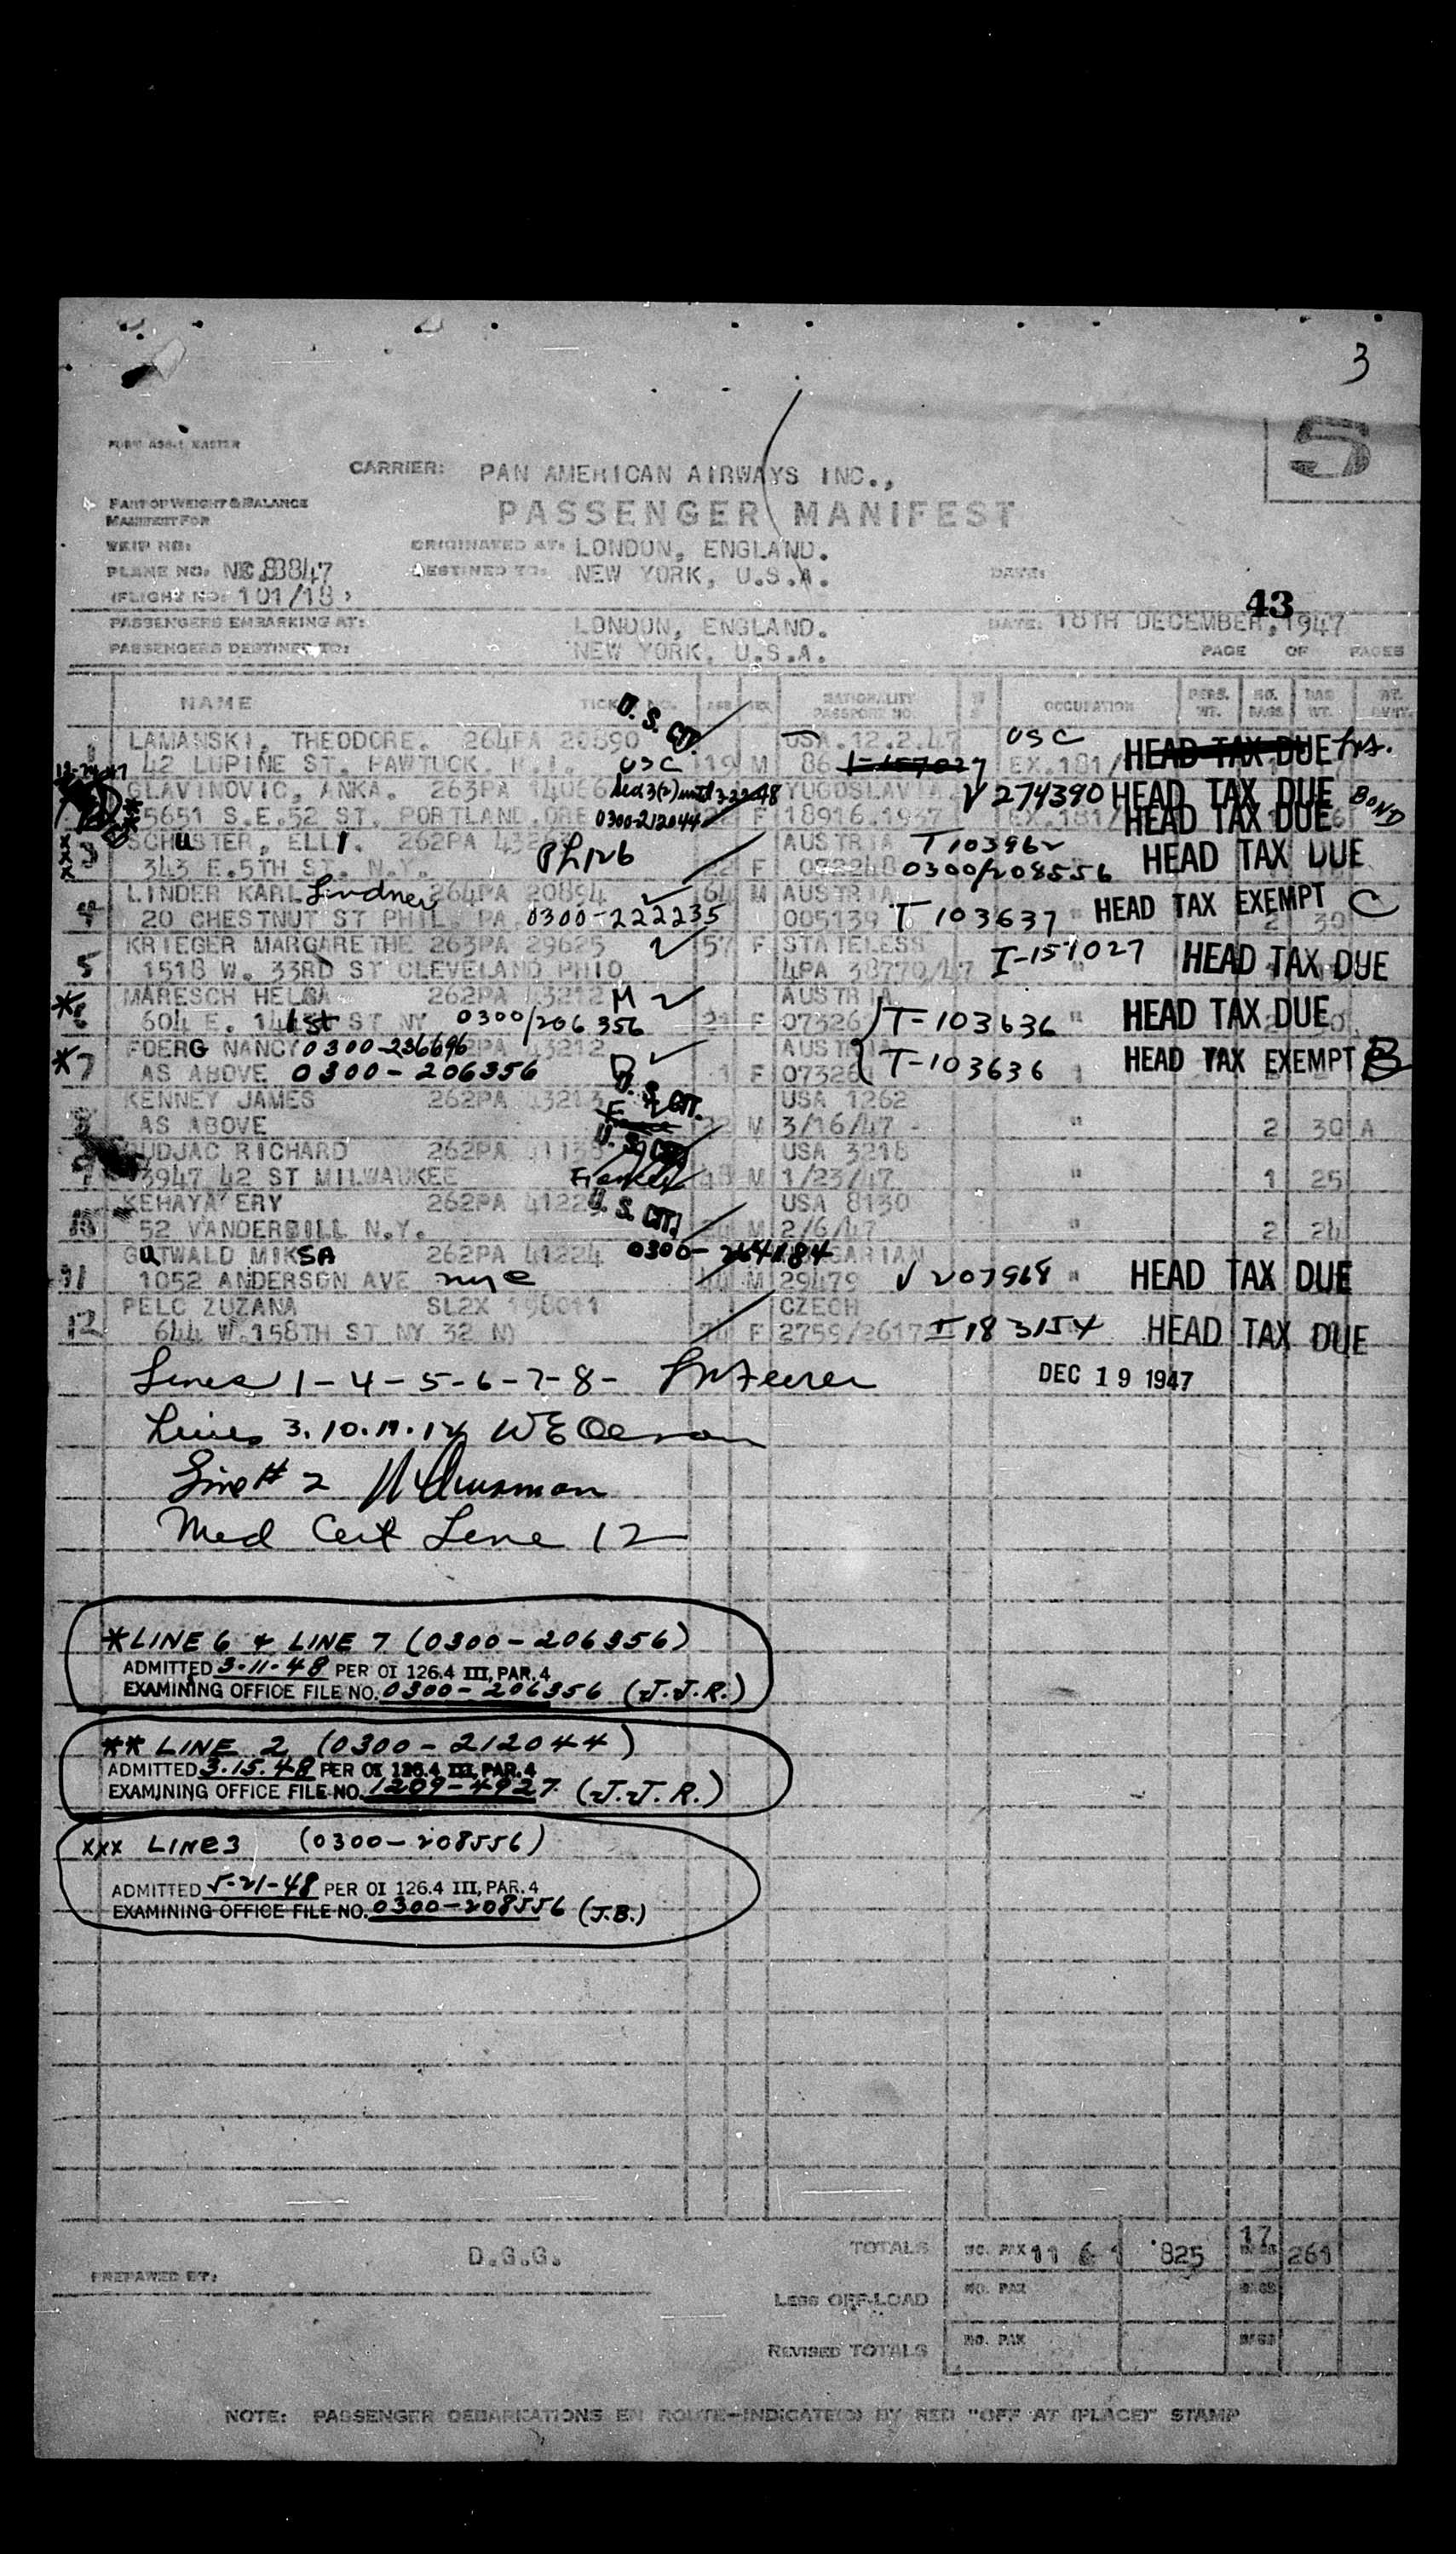 3
S
FORM
CARRIER: PAN AMERICAN AIRWAYS INC.,
PART OF WEIGHT & BALANCE
MANIFEST FOR
PASSENGER MANIFEST
TRIP NO:
ORIGINATED AT: LONDON, ENGLAND.
PLANE NO. NC.88847
DESTINED TO: NEW YORK, U.S.A.
DATE:
(FLIGHT NO: 101/18)
43
PASSENGERS EMBARKING AT: LONDON, ENGLAND. DATE: 18TH DECEMBER, 1947
PASSENGERS DESTINED TO: NEW YORK, U.S.A. PAGE OF PAGES
NAME AGE SEX NATIONALITY PASSPORT NO. OCCUPATION PERS. WT. NO. BAGS BAG WT.
U. S. CIT.
LAMANSKI, THEODORE. 264PA 20890 USA.12.2.47 USC
1 42 LUPINE ST. PAWTUCK. R.I. USC 19 M 86 I-157027 EX.181/ HEAD TAX DUE
GLAVINOVIC, ANKA. 263PA 14066 YUGOSLAVIA V 274390 HEAD TAX DUE BOND
5651 S.E.52 ST. PORTLAND.ORE 0300-212044 F 18916.1947 EX.181/ HEAD TAX DUE
SCHUSTER, ELLI. 262PA AUSTRIA T 103962
xxx 3 343 E.5TH ST. N.Y. 22 F 072248 0300/208556 HEAD TAX DUE
LINDER KARL Lindner 264PA 20894 64 M AUSTRIA
4 20 CHESTNUT ST PHIL. PA 0300-222235 005139 T 103637 " HEAD TAX EXEMPT C
KRIEGER MARGARETHE 263PA 29625 57 F STATELESS
5 1518 W. 33RD ST CLEVELAND PHIO 4PA 38770/47 I-157027 HEAD TAX DUE
MARESCH HELGA 262PA 43212 M AUSTRIA
* 6 604 E. 141st ST NY 0300/206356 21 F 07326 T-103636 " HEAD TAX DUE
FOERG NANCY 0300-236696 262PA 43212 AUSTRIA
* 7 AS ABOVE 0300-206356 1 F 07326 T-103636 HEAD TAX EXEMPT B
KENNEY JAMES 262PA 43213 U. S. CIT. USA 1262
8 AS ABOVE 22 M 3/16/47 " 2 30 A
BUDJAC RICHARD 262PA U. S. CIT. USA 3218
9 3947 42 ST MILWAUKEE M 1/23/47 " 1 25
KEHAYA ERY 262PA 4122 U. S. CIT. USA 8130
10 52 VANDERBILL N.Y. M 2/6/47 " 2 24
GUTWALD MIKSA 262PA 41224 0300-264184 HUNGARIAN
11 1052 ANDERSON AVE nyc 44 M 29479 V 207968 " HEAD TAX DUE
PELC ZUZANA SL2X 198011 CZECH
12 644 W.158TH ST NY 32 NY 70 F 2759/2617 I 183154 HEAD TAX DUE
Lines 1-4-5-6-7-8-
DEC 19 1947
Lines 3.10.11.12
Line # 2
Med Cert Line 12
*LINE 6 & LINE 7 (0300-206356)
ADMITTED 3-11-48 PER OI 126.4 III, PAR. 4
EXAMINING OFFICE FILE NO. 0300-206356 (J.J.R.)
** LINE 2 (0300-212044)
ADMITTED 3.15.48 PER OI 126.4 III, PAR. 4
EXAMINING OFFICE FILE NO. 1209-4927 (J.J.R.)
xxx LINE 3 (0300-208556)
ADMITTED 5-21-48 PER OI 126.4 III, PAR. 4
EXAMINING OFFICE FILE NO. 0300-208556 (J.B.)
PREPARED BY: D.G.G.
TOTALS NO. PAX 11 6 1 825 17 BAGS 261
LESS OFF-LOAD NO. PAX BAGS
REVISED TOTALS NO. PAX BAGS
NOTE: PASSENGER DEBARKATIONS EN ROUTE-INDICATE(D) BY RED "OFF AT (PLACE)" STAMP